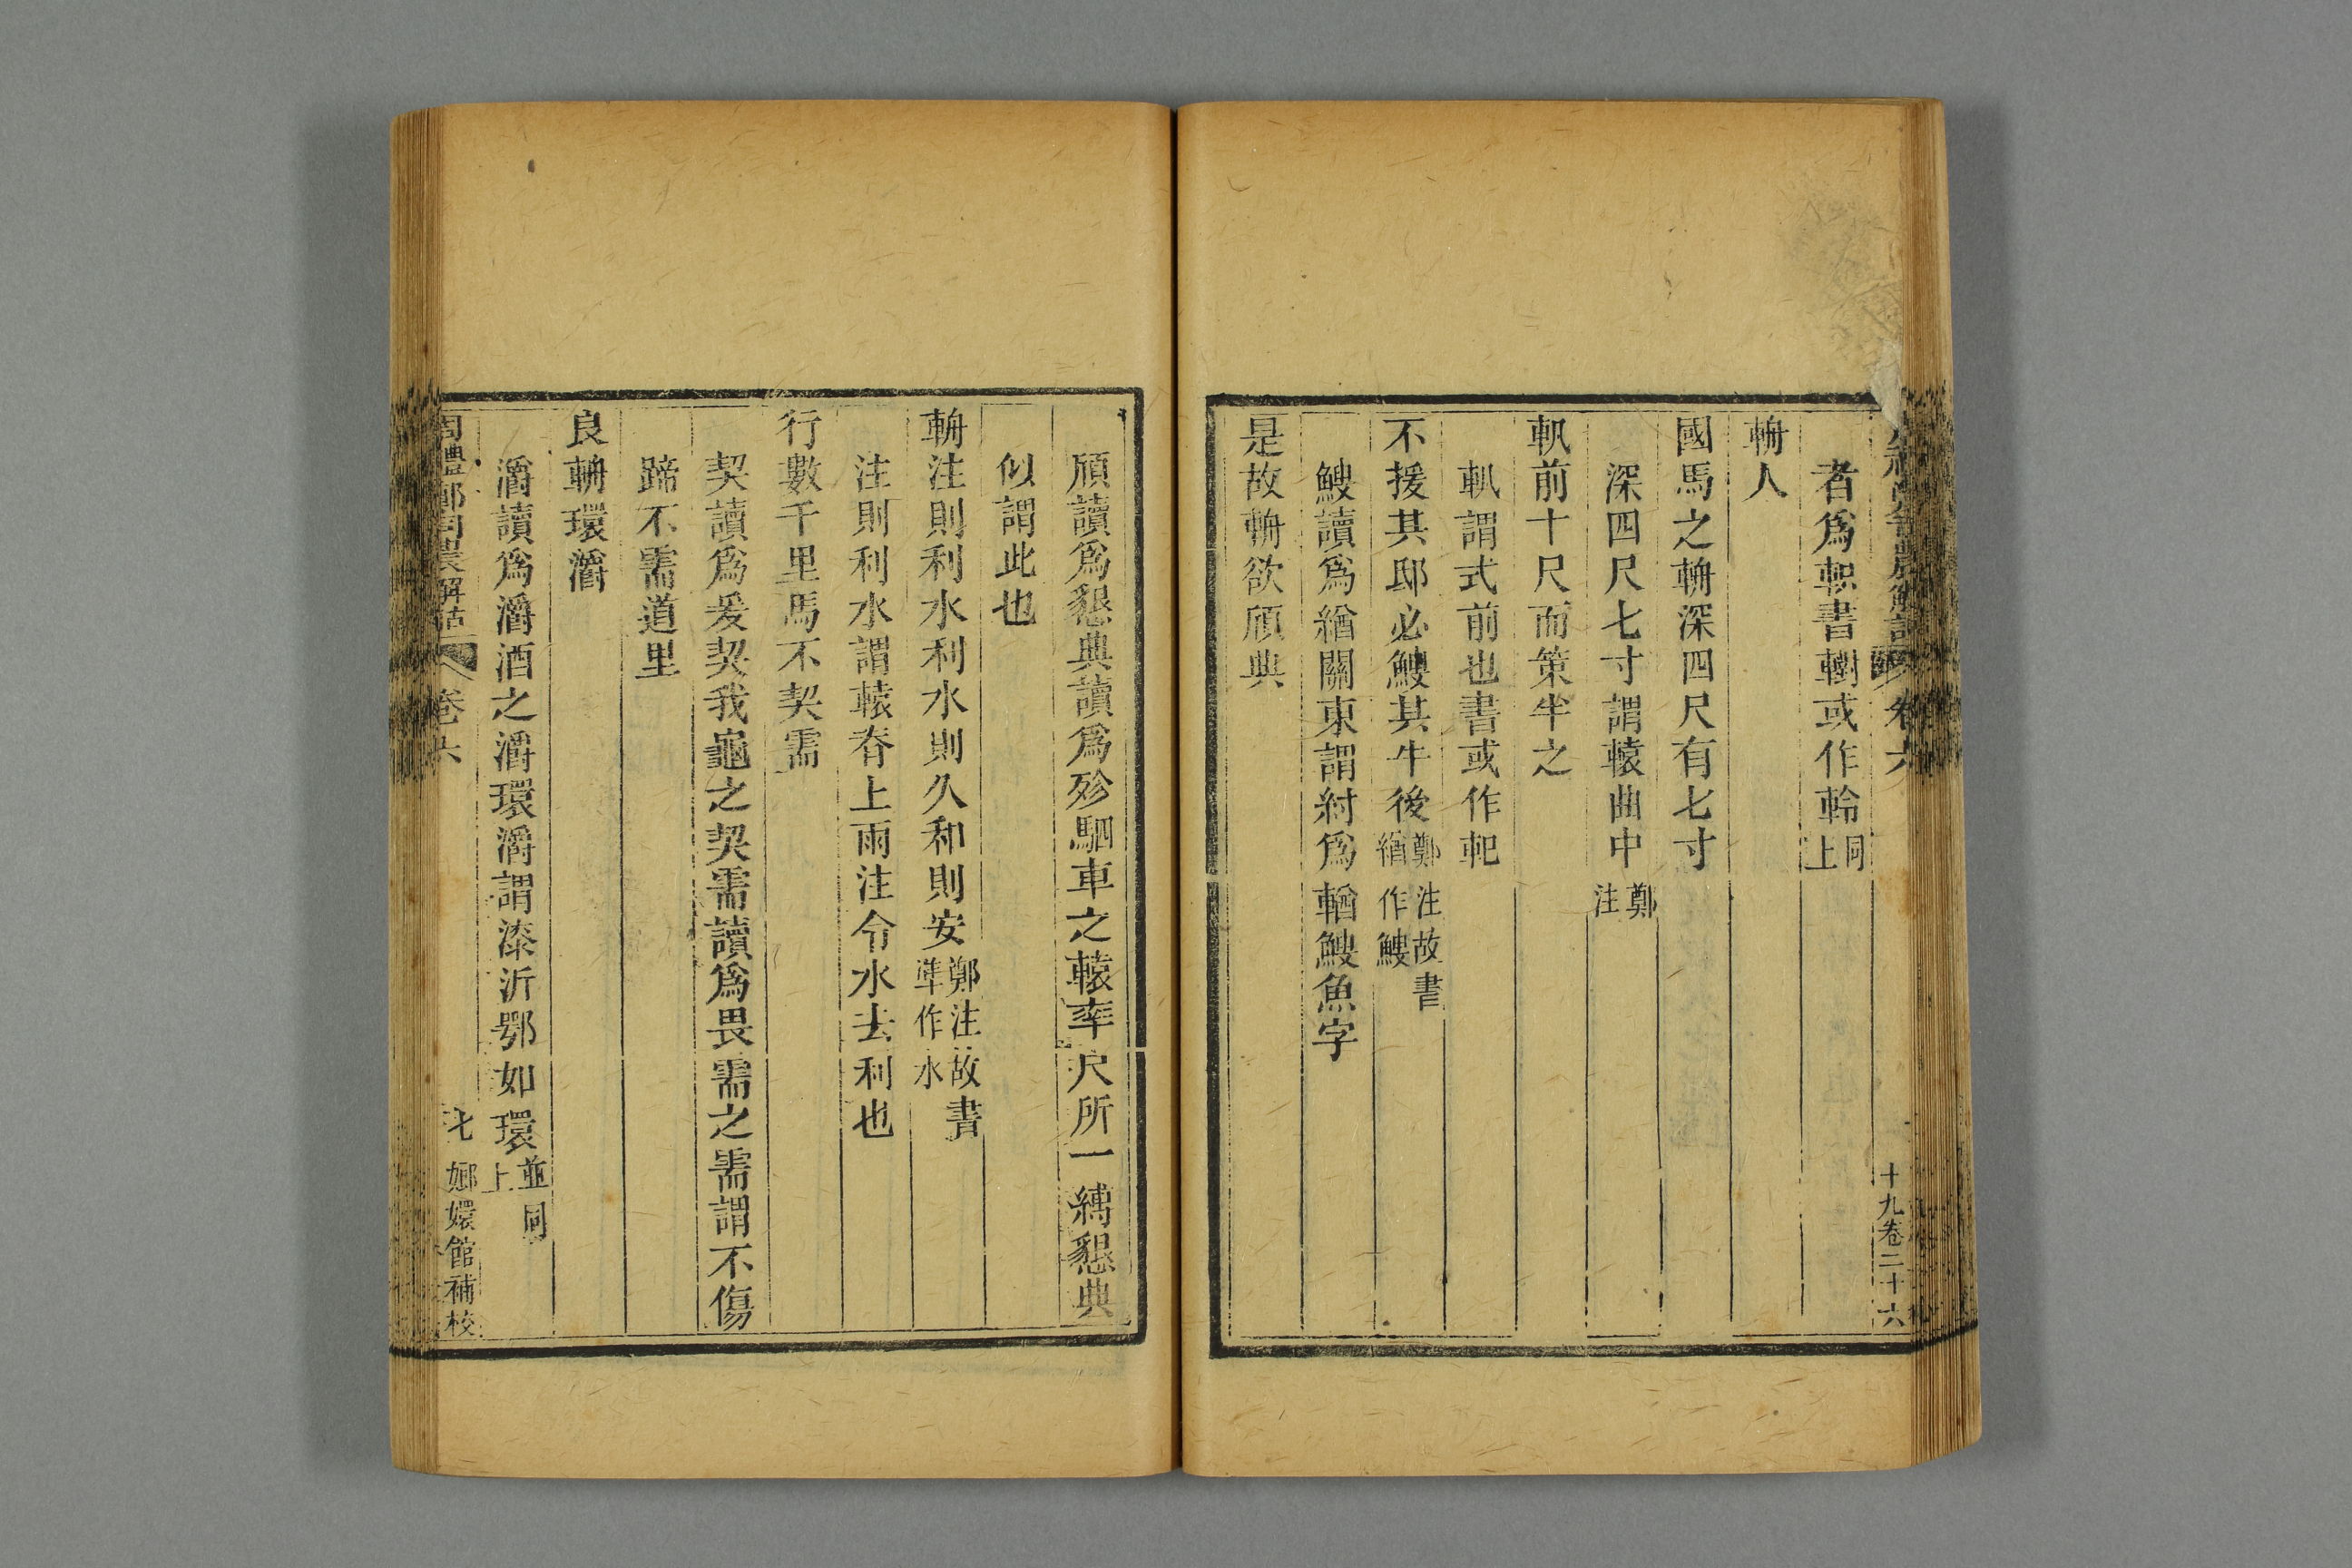 者爲軹書轛或作軨同上
輈人
國馬之輈深四尺有七寸
深四尺七寸謂轅曲中鄭注
軓前十尺而策半之
軓謂式前也書或作軋
不援其邸必鰒其牛後鄭注故書緧作鰒
鰒讀爲緧關東謂紂爲輶鰒魚字
是故輈欲頎典
十九卷二十六
頎讀爲懇典讀爲殄駟車之轅率尺所一縛懇典
似謂此也
輈注則利水利水則久和則安鄭注故書準作水
注則利水謂轅脊上雨注令水去利也
行數千里馬不契需
契讀爲爰契我龜之契需讀爲畏需之需謂不傷
蹄不需道里
良輈環灂
灂讀爲灂酒之灂環灂謂漆沂鄂如環並同上
周禮鄭司農解詁 卷六 七 嫏嬛館補校